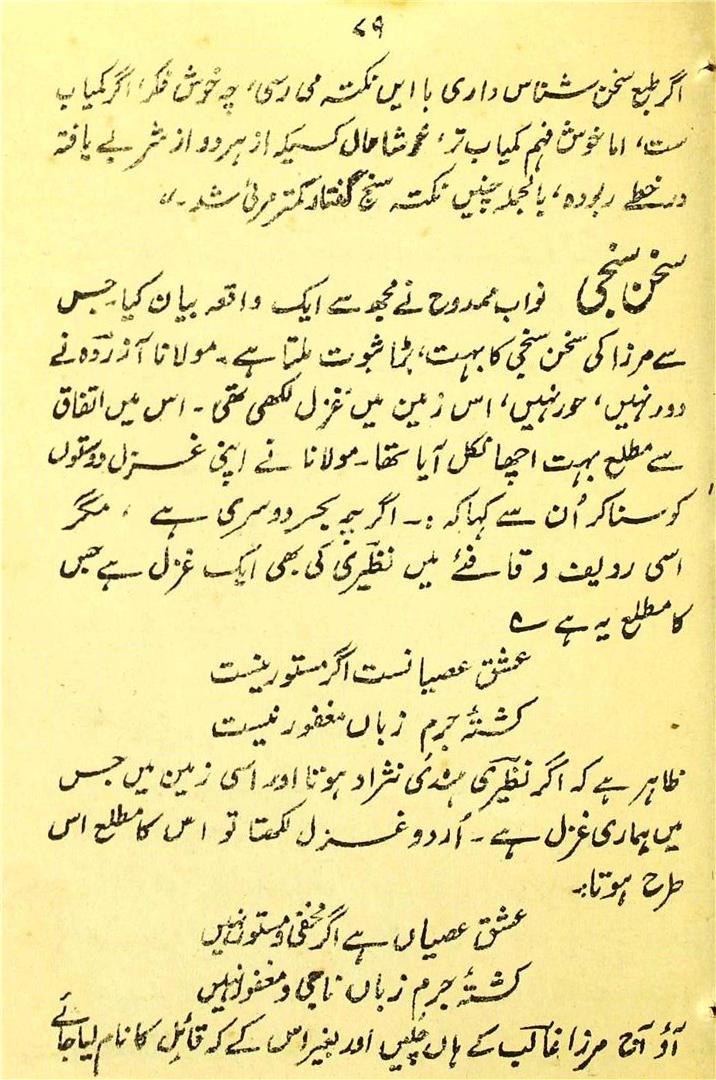 ۷۹
اگر طبع سخن شناس داری با ایں نکتہ می رسی، چہ خوش فکر اگر کمیاب
ست، اما خوش فہم کمیاب تر، خوشا حال کسیکہ از ہر دو از شربے یافتہ
در خطے ربودہ، بالجملہ چنیں نکتہ سنج گفتار کمتر مرئی شد۔"
سخن سنجی نواب ممدوح نے مجھ سے ایک واقعہ بیان کیا۔ جس
سے مرزا کی سخن سنجی کا بہت، بڑا ثبوت ملتا ہے۔ مولانا آزردہ نے
دور نہیں، حور نہیں، اس زمین میں غزل لکھی تھی۔ اس میں اتفاق
سے مطلع بہت اچھا نکل آیا تھا۔ مولانا نے اپنی غزل دوستوں
کو سنا کر اُن سے کہا کہ :۔ اگرچہ بحر دوسری ہے، مگر
اسی ردیف و قافئے میں نظیری کی بھی ایک غزل ہے جس
کا مطلع یہ ہے ؎
عشق عصیانست اگر مستور نیست
کشتۂ جرم زباں مغفور نیست
ظاہر ہے کہ اگر نظیری ہندی نژاد ہوتا اور اسی زمین میں جس
میں ہماری غزل ہے۔ اُردو غزل لکھتا تو اس کا مطلع اس
طرح ہوتا:۔
عشق عصیاں ہے اگر مخفی و مستور نہیں
کشتۂ جرم زباں ناجی و مغفور نہیں
آؤ آج مرزا غالب کے ہاں چلیں اور بغیر اس کے کہ قائل کا نام لیا جائے